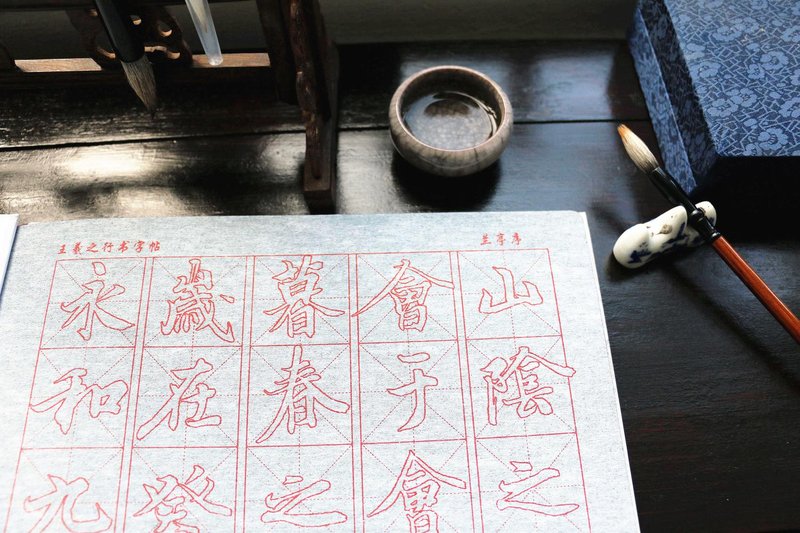 王羲之行书字帖
兰亭序
永和九
歲在癸
暮春之
會于會
山陰之